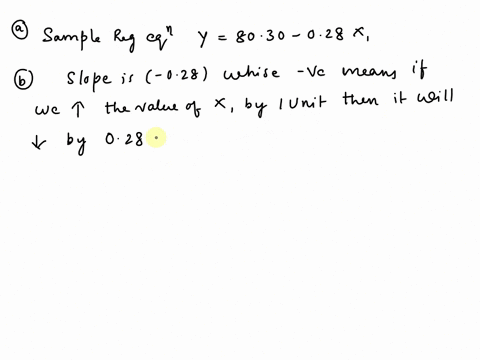 (a) Sample Reg eqⁿ Y = 80.30 - 0.28 X₁
(b) Slope is (-0.28) whise -Vc means if
we ↑ the value of X₁ by 1 Unit then it will
↓ by 0.28